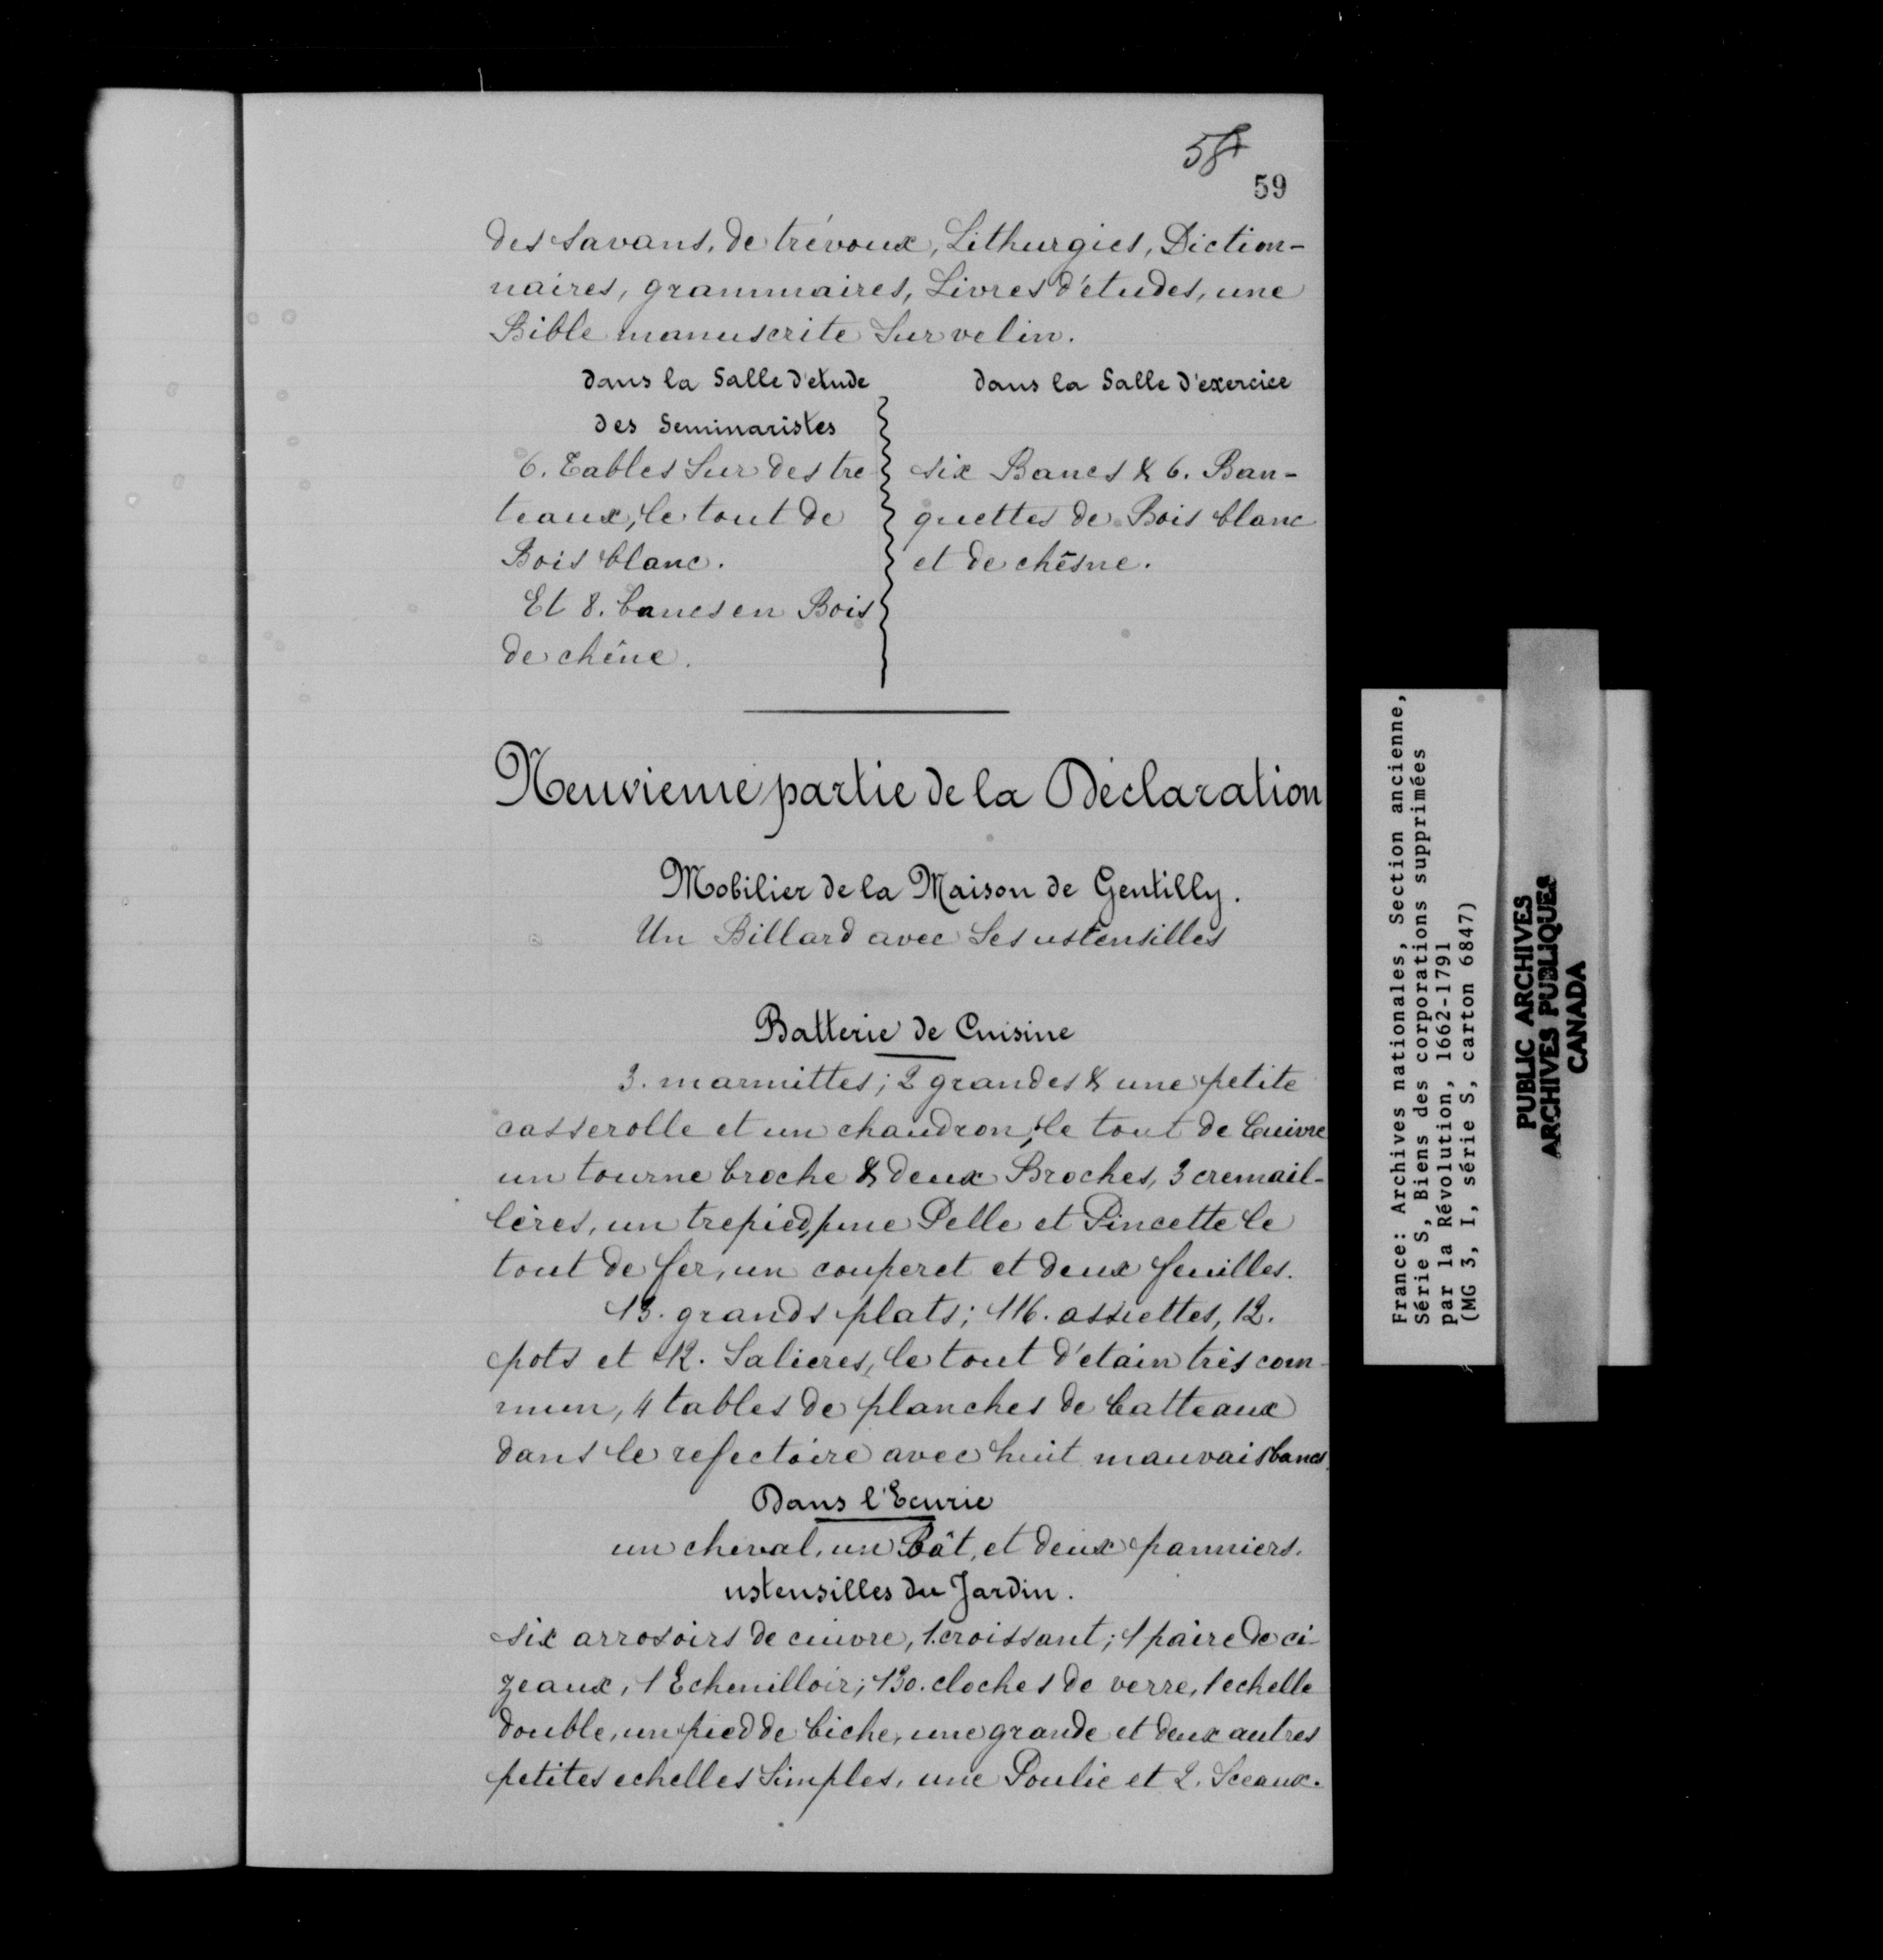 58
59
des Savans, de trévoux, Lithurgies, Diction-
naires, grammaires, Livres d'études, une
Bible manuscrite Sur velin.
dans la Salle d'etude
des Seminaristes
6. Tables Sur des tre
teaux, le tout de
Bois blanc.
Et 8. bancs en Bois
de chêne.
dans la Salle d'exercice
six Bancs & 6. Ban-
quettes de Bois blanc
et de chêsne.
Neuvieme partie de la Déclaration
Mobilier de la Maison de Gentilly.
Un Billard avec Ses ustensilles
Batterie de Cuisine
3. marmittes; 2 grandes & une petite
casserolle et un chaudron, le tout de Cuivre
un tourne broche & deux Broches, 3 cremail-
lères, un trepied, une Pelle et Pincette le
tout de fer, un couperet et deux feuilles.
13. grands plats; 116. assiettes, 12.
pots et 12. Salieres, le tout d'etain très com-
mun, 4 tables de planches de batteaux
dans le refectoire avec huit mauvais bancs.
Dans l'Ecurie
un cheval, un Bât, et deux panniers.
ustensilles du Jardin.
six arrosoirs de cuivre, 1. croissant; 1 paire de ci-
zeaux, 1 Echenilloir; 130. cloches de verre, 1 echelle
double, un pied de biche, une grande et deux autres
petites echelles Simples, une Poulie et 2. Sceaux.
France: Archives nationales, Section ancienne,
Série S, Biens des corporations supprimées
par la Révolution, 1662-1791
(MG 3, I, série S, carton 6847)
PUBLIC ARCHIVES
ARCHIVES PUBLIQUES
CANADA